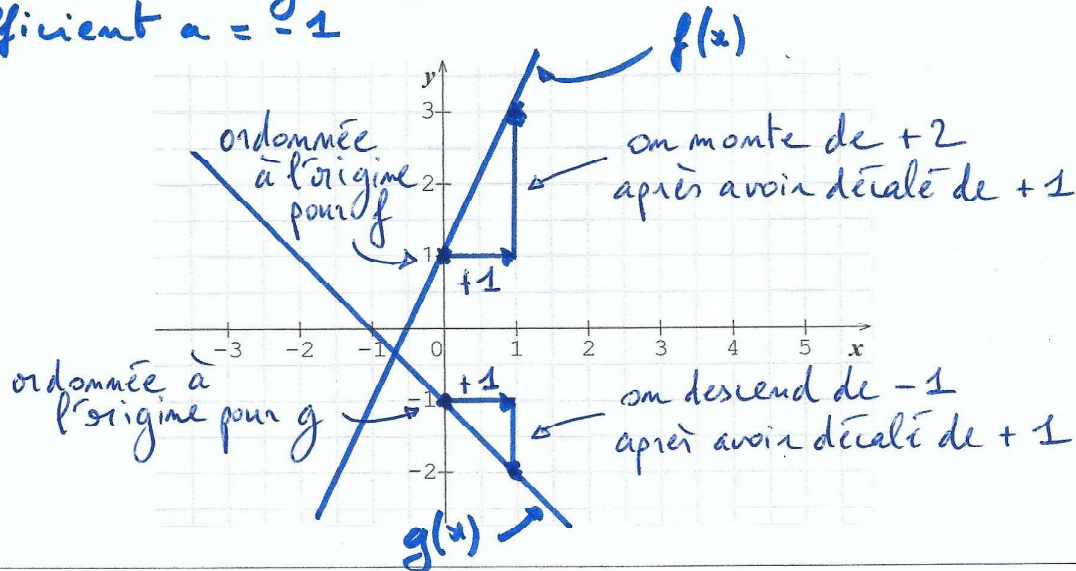 efficient a = -1
f(x)
y
ordonnée
à l'origine
pour f
on monte de +2
après avoir décalé de +1
3
2
1
+1
-3 -2 -1 0 1 2 3 4 5 x
ordonnée à
l'origine pour g
+1
-1
-2
on descend de -1
après avoir décalé de +1
g(x)